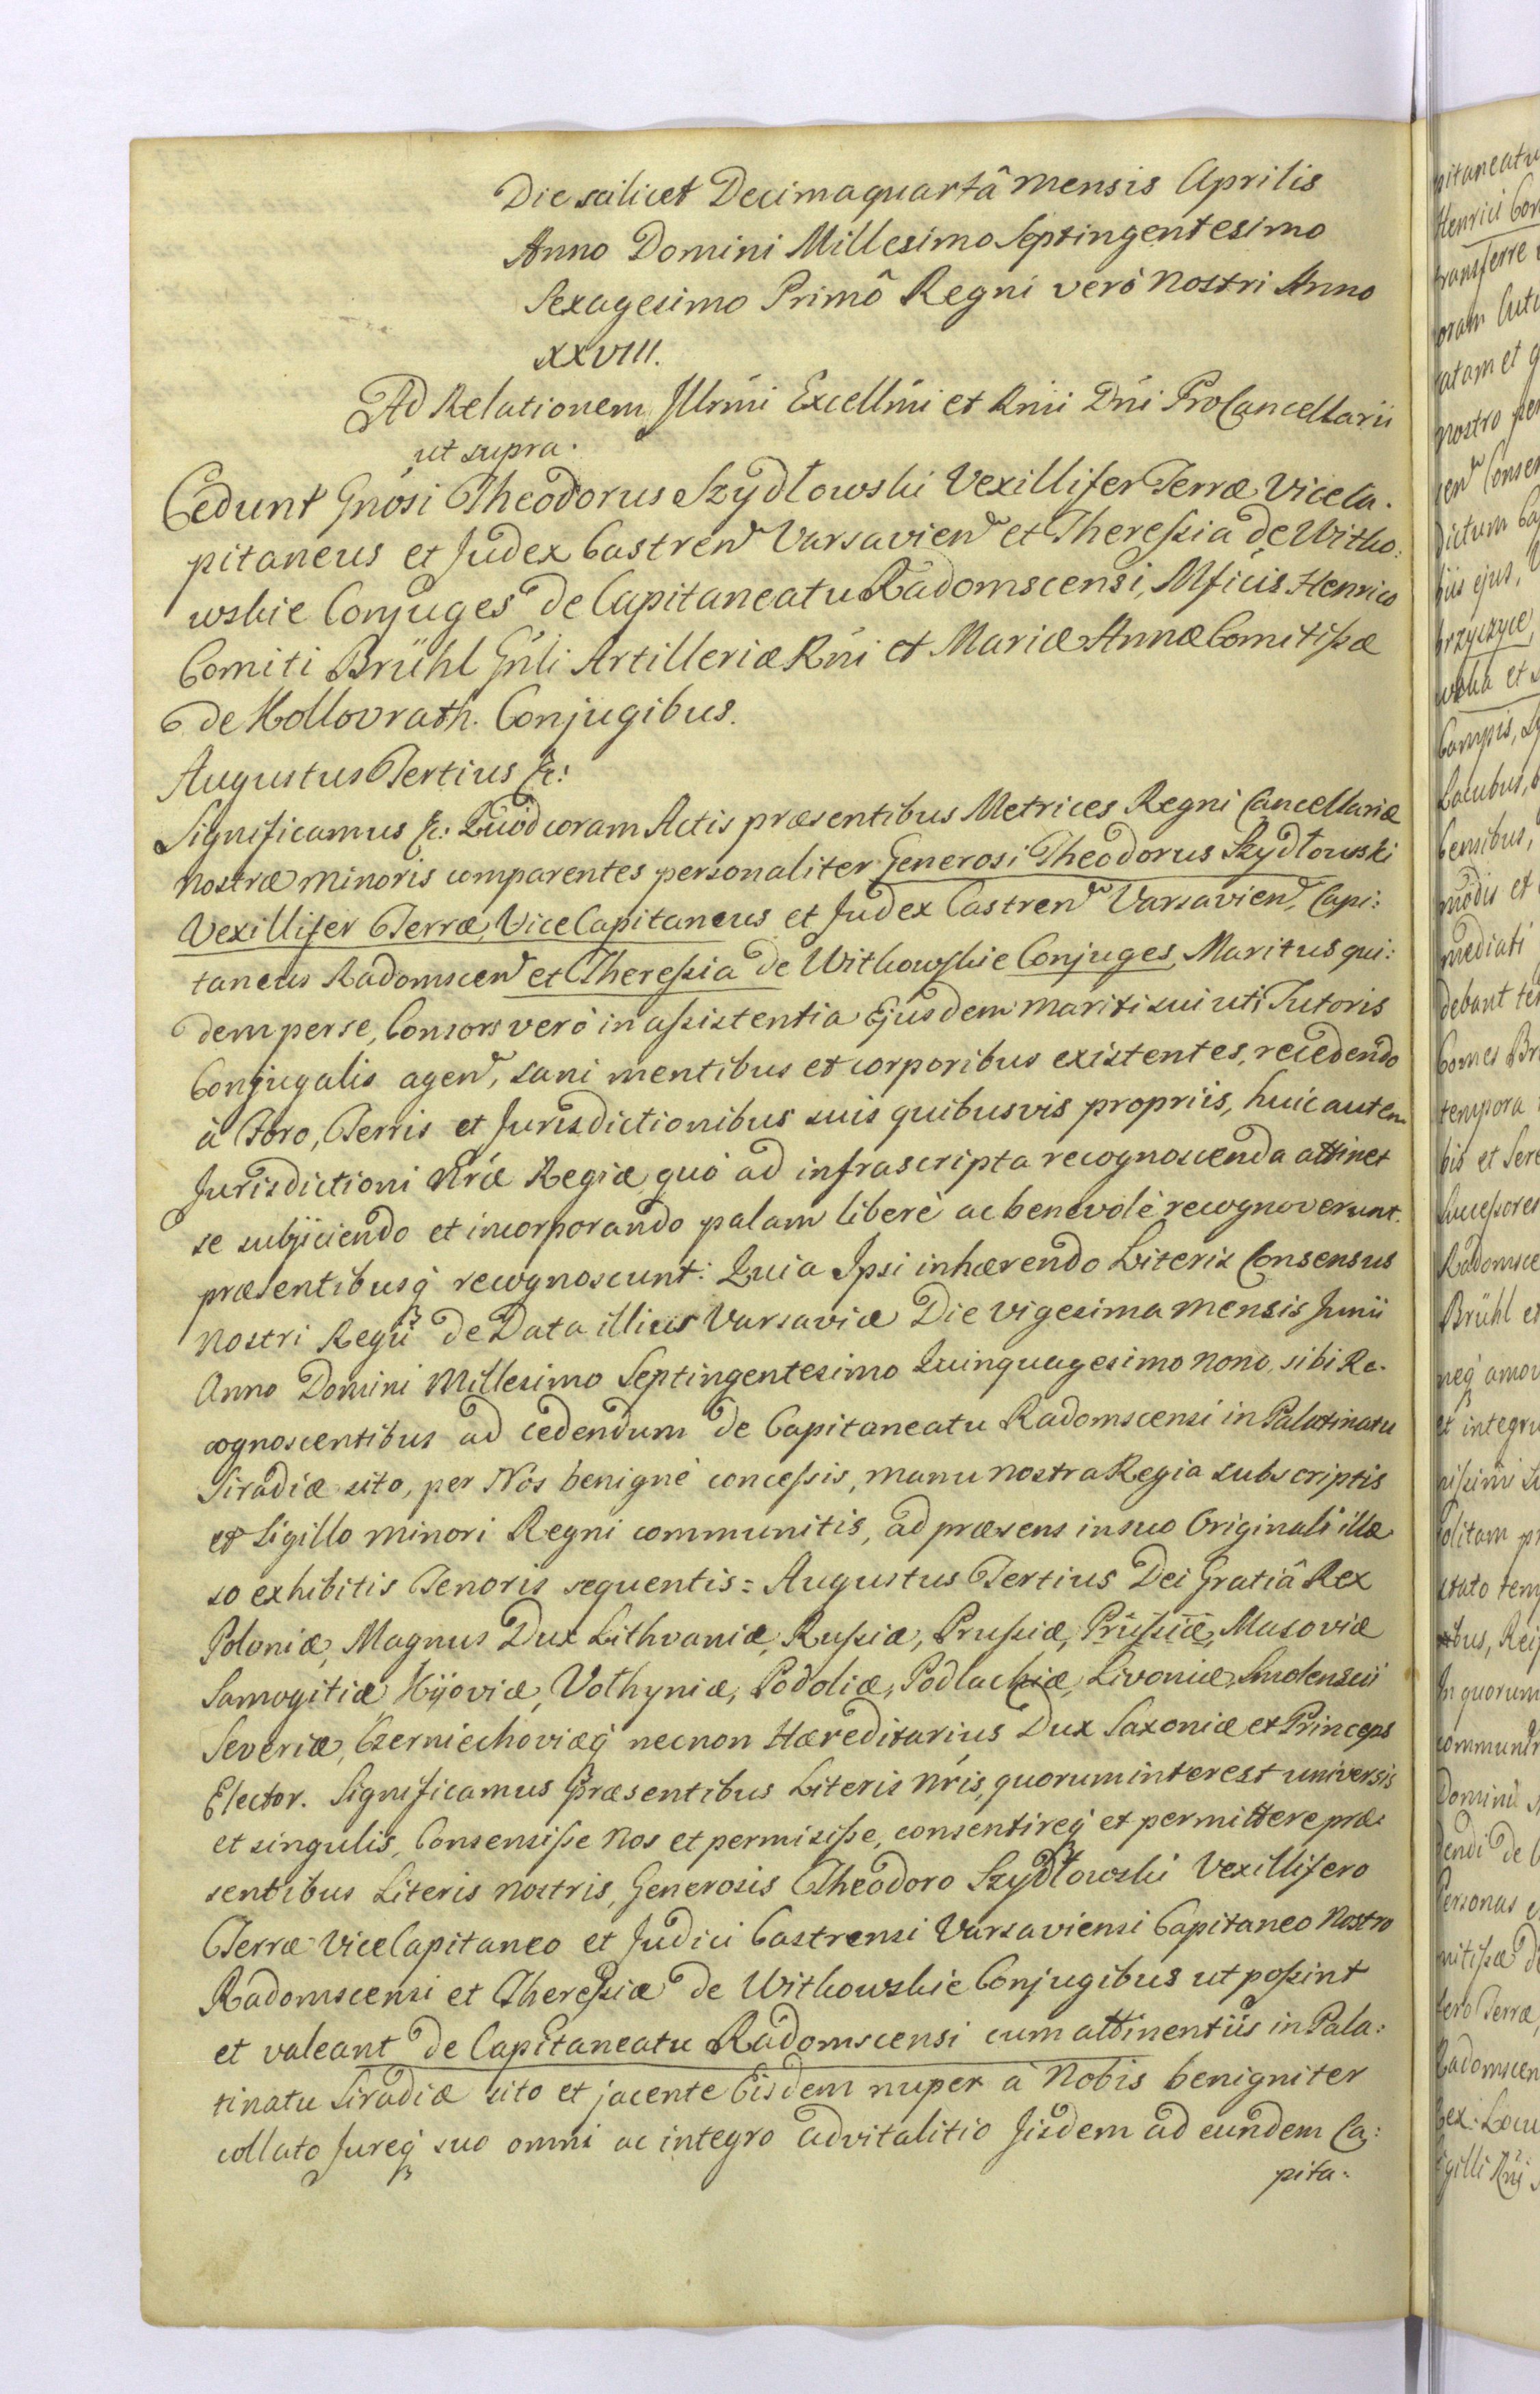 Die scilicet Decimaquartâ Mensis Aprilis
Anno Domini Millesimo Septingentesimo
Sexagesimo Primô Regni verò Nostri Anno
XXVIII.
Ad Relationem Illrmi Excellmi et Rmi Dni ProCancellarii
ut supra.
Cedunt Gnosi Theodorus Szydłowski Vexillifer Terræ Viceca-
pitaneus et Judex Castren Varsavien et Theressia de Witko:
wskie Conjuges de Capitaneatu Radomscensi, Mficis Henrico
Comiti Brühl Gnli Artilleriæ Rni et Mariæ Annæ Comitissæ
de Kollovrath. Conjugibus.
Augustus Tertius &c:
Significamus &c: Quòd coram Actis præsentibus Metrices Regni Cancellariæ
Nostræ Minoris comparentes personaliter Generosi Theodorus Szydłowski
Vexillifer Terræ, ViceCapitaneus et Judex Castren Varsavien, Capi:
taneus Radomscen et Theressia de Witkowskie Conjuges, Maritus qui:
dem per se, Consors verò in assistentia Ejusdem Mariti sui uti Tutoris
Conjugalis agen, sani mentibus et corporibus existentes, recedendo
à Foro, Terris et Jurisdictionibus suis quibusvis propriis, huic autem
Jurisdictioni Nræ Regiæ quò ad infrascripta recognoscenda attinet
se subjiciendo et incorporando palam liberè ac benevolè recognoverunt.
præsentibusq recognoscunt: Quia Ipsi inhærendo Literis Consensus
Nostri Regii de Data illius Varsaviæ Die vigesima Mensis Junii
Anno Domini Millesimo Septingentesimo Quinquagesimo Nono, sibi Re-
cognoscentibus ad cedendum de Capitaneatu Radomscensi in Palatinatu
Siradiæ sito, per Nos benignè concessis, manu Nostra Regia subscriptis
et Sigillo Minori Regni communitis, ad præsens in suo Originali illæ
so exhibitis Tenoris sequentis = Augustus Tertius Dei Gratiâ Rex
Poloniæ, Magnus Dux Lithvaniæ, Russiæ, Prussiæ, Prussiæ, Masoviæ
Samogitiæ, Kijoviæ, Volhyniæ, Podoliæ, Podlachiæ, Livoniæ, Smolensciæ
Severiæ, Czerniechoviæq necnon Hæreditarius Dux Saxoniæ et Princeps
Elector. Significamus Præsentibus Literis Nris, quorum interest universis
et singulis, Consensisse Nos et permisisse, consentireq et permittere præ:
sentibus Literis Nostris, Generosis Theodoro Szydłowski Vexillifero
Terræ ViceCapitaneo et Judici Castrensi Varsaviensi Capitaneo Nostro
Radomscensi et Theressiæ de Witkowskie Conjugibus ut possint
et valeant de Capitaneatu Radomscensi cum attinentiis in Pala:
tinatu Siradiæ sito et jacente Eisdem nuper à Nobis benigniter
collato Jureq suo omni ac integro advitalitio Iisdem ad eundem Ca:
pita-